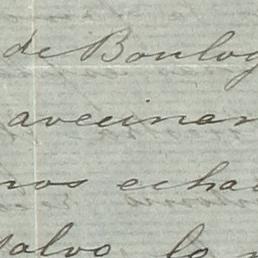 de Boulog
avecinar
nos echa
salvo lo